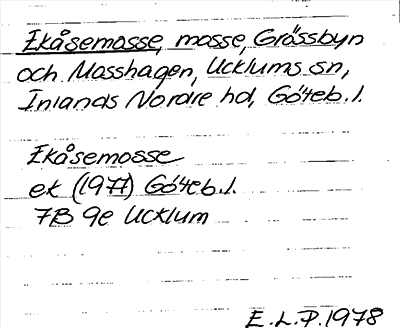 Ekåsemosse, mosse, Grössbyn
och Mosshagen, Ucklums sn,
Inlands Nordre hd, Göteb. l.
Ekåsemosse
ek (1977) Göteb. l.
7B 9e Ucklum
E. L. P. 1978